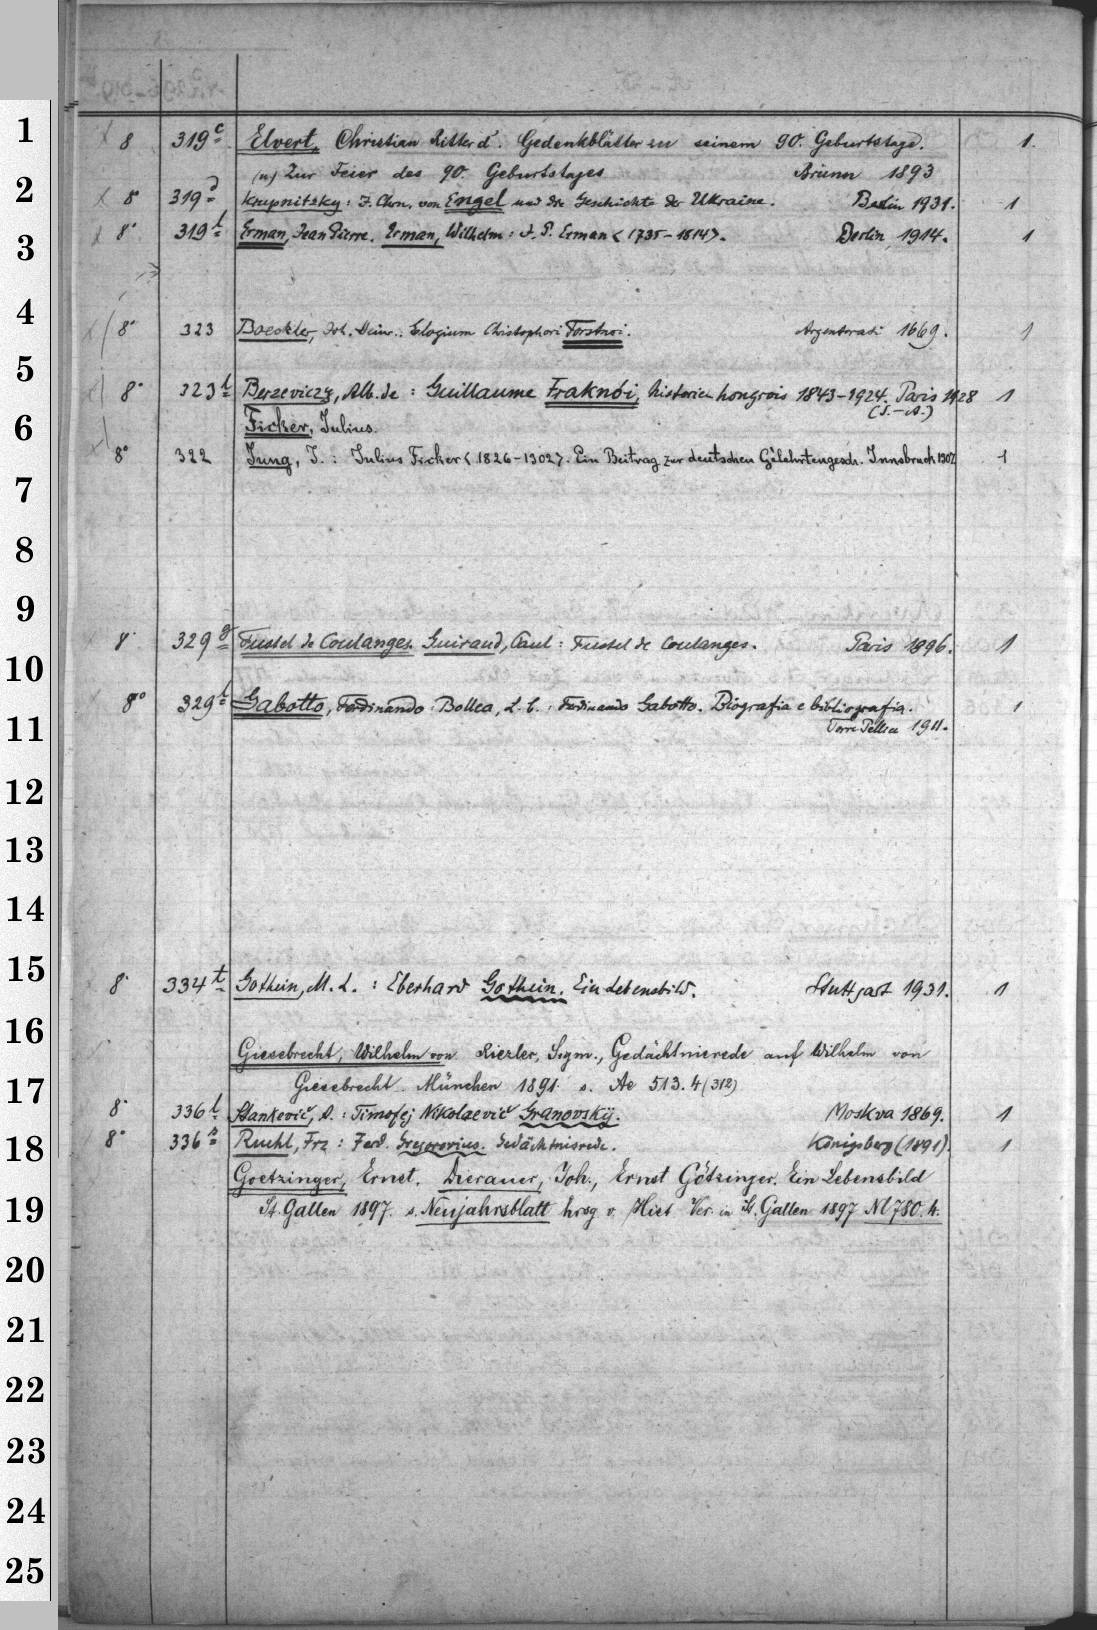 1 8 319c Elvert, Christian Ritter d'. Gedenkblätter zu seinem 90. Geburtstage. 1.
(u) Zur Feier des 90. Geburtstages Brünn 1893
2 8° 319d Krupnitzky: J. Chrn. von Engel und die Geschichte der Ukraine. Berlin 1931. 1
3 8° 319f Erman, Jean Pierre. Erman, Wilhelm: J. P. Erman <1735-1814>. Berlin 1914. 1
4 8° 323 Boeckler, Joh. Heinr.: Elogium Christophori Forstneri. Argentorati 1669. 1
5 8° 323b Berzeviczy, Alb. de: Guillaume Fraknói, historien hongrois 1843-1924. Paris 1928 1
(S.-A.)
6 Ficker, Julius.
8° 322 Jung, J.: Julius Ficker <1826-1902>. Ein Beitrag zur deutschen Gelehrtengesch. Innsbruck 1907 1
7
8
9
8° 329g Fustel de Coulanges. Guiraud, Paul: Fustel de Coulanges. Paris 1896. 1
10
8° 329i Gabotto, Ferdinando: Bollea, L. C.: Ferdinando Gabotto. Biografia e bibliografia. 1
11 Torre Pellice 1911.
12
13
14
15 8° 334t Gothein, M. L.: Eberhard Gothein. Ein Lebensbild. Stuttgart 1931. 1
16
Giesebrecht, Wilhelm von Riezler, Sigm., Gedächtnisrede auf Wilhelm von
17 Giesebrecht. München 1891. s. Ae 513.4 (312)
8° 336l Stankevič, A.: Timofej Nikolaevič Granovskij. Moskva 1869. 1
18 8° 336n Ruehl, Frz: Ferd. Gregorovius. Gedächtnisrede. Königsberg (1891). 1
Goetzinger, Ernst. Dierauer, Joh., Ernst Götzinger. Ein Lebensbild
19 St. Gallen 1897. s. Neujahrsblatt hrsg v. Hist Ver. in St. Gallen 1897 Nl 780. 4.
20
21
22
23
24
25